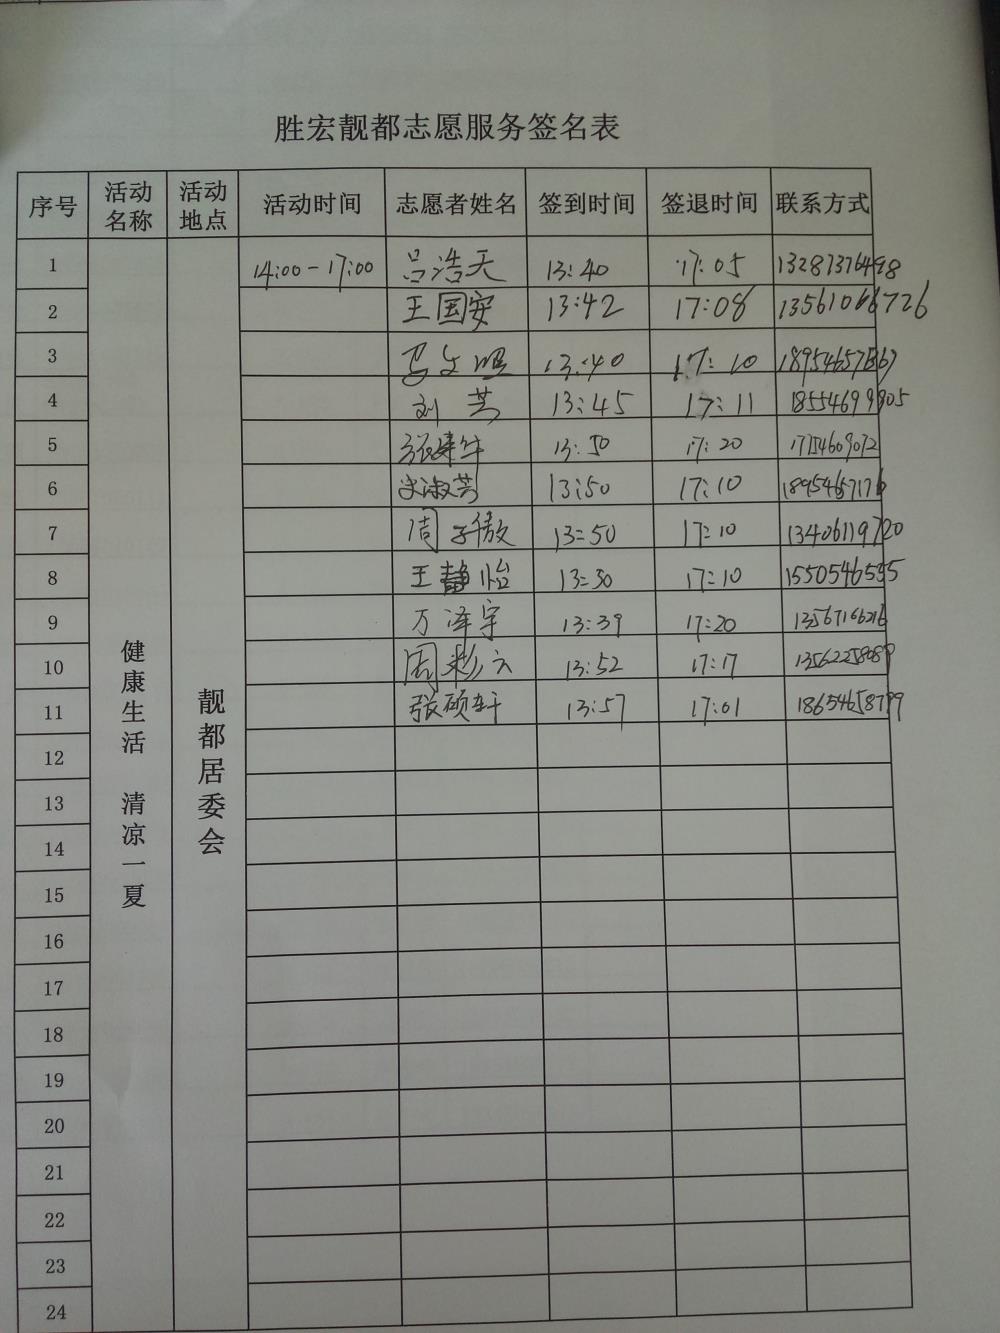 胜宏靓都志愿服务签名表
序号 活动名称 活动地点 活动时间 志愿者姓名 签到时间 签退时间 联系方式
健康生活 清凉一夏
靓都居委会
1 14:00-17:00 吕浩天 13:40 17:05 13287376498
2 王国安 13:42 17:08 13561066726
3 马文明 13:40 17:10
4 刘芳 13:45 17:11 18554699905
5 13:50 17:20 17154609072
6 宋淑芳 13:50 17:10 18954657176
7 周子傲 13:50 17:10 13406119720
8 王静怡 13:30 17:10 1550546555
9 万泽宇 13:39 17:20 13567166216
10 周彩云 13:52 17:17
11 张硕轩 13:57 17:01 18654658799
12
13
14
15
16
17
18
19
20
21
22
23
24